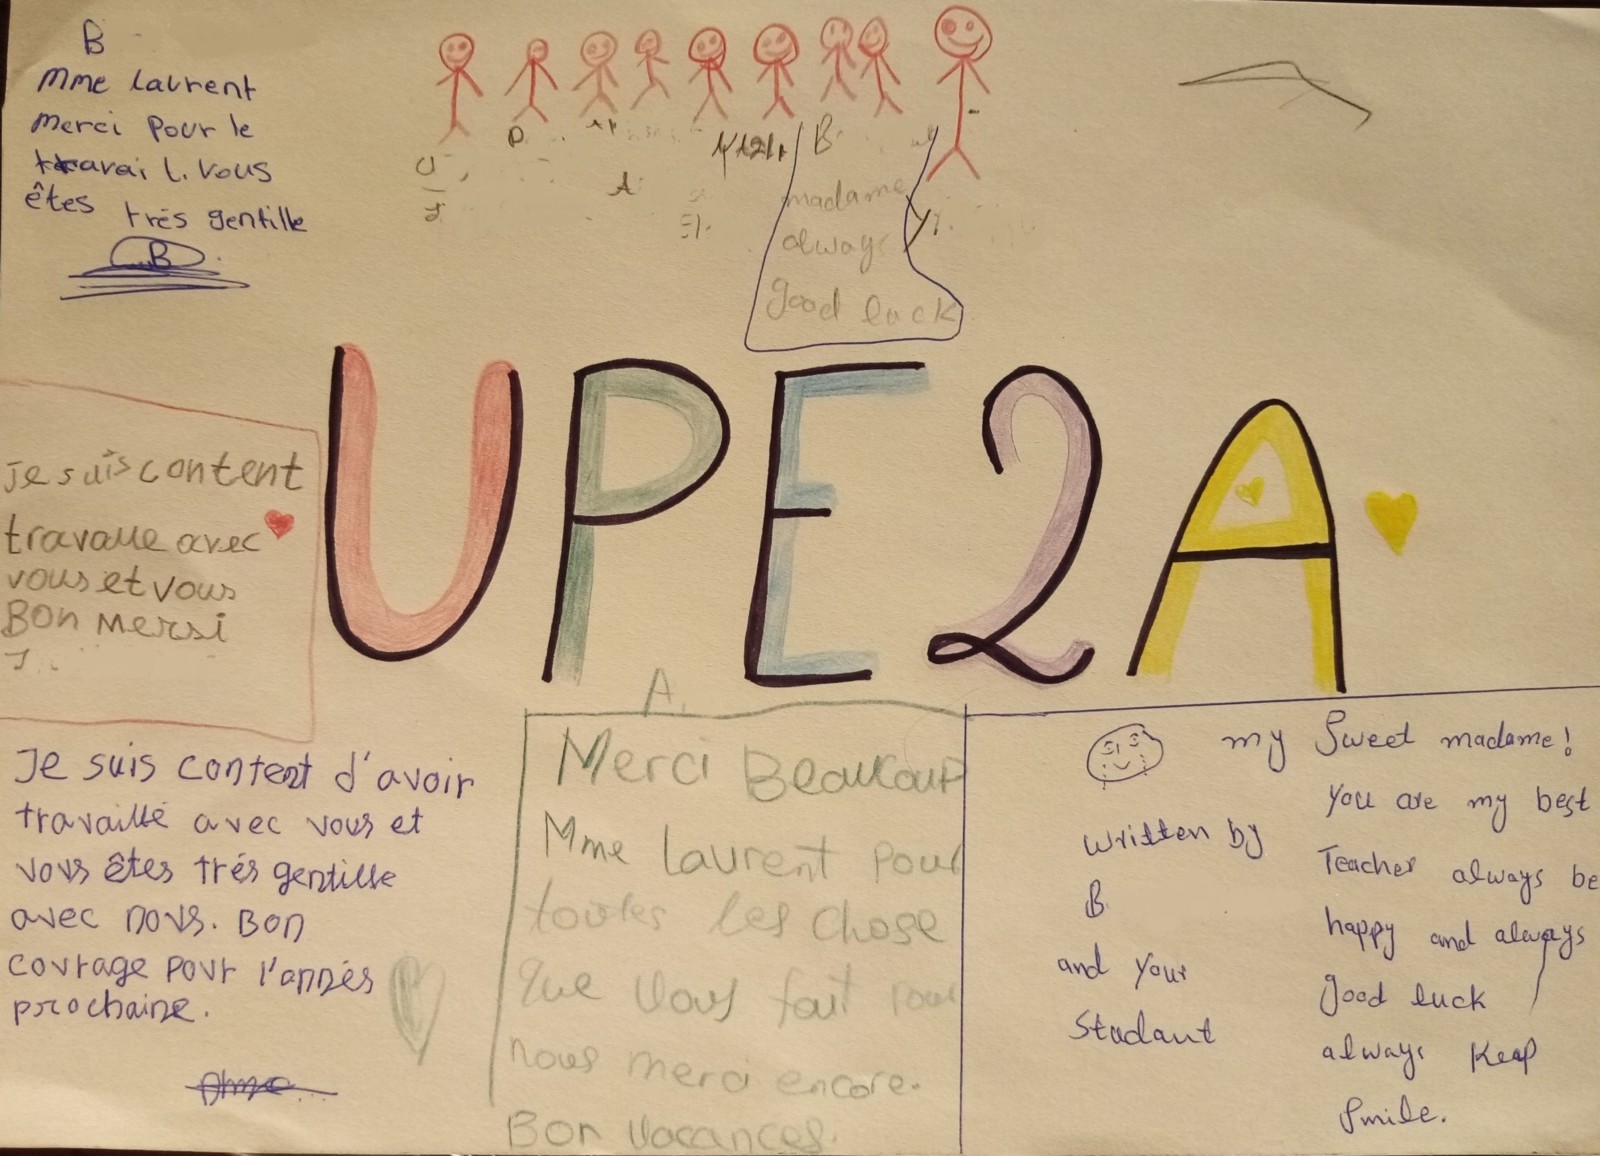 B
Mme Laurent
Merci pour le
travail. Vous
êtes très gentille
B
D
U
A
B
madame
always
Y.
good luck
UPE2A
Je suis content
travaue avec
vous et vous
Bon Mersi
J
Je suis content d'avoir
travaillé avec vous et
vous êtes trés gentille
avec nous. Bon
courage pour l'annés
prochaine.
A.
Merci Beaucoup
Mme Laurent pour
toutes les chose
que vous fait pour
nous merci encore.
Bon vacances.
written by
B.
and your
Studant
my Sweet madame!
you are my best
Teacher always be
happy and always
good luck
always Keep
Smile.